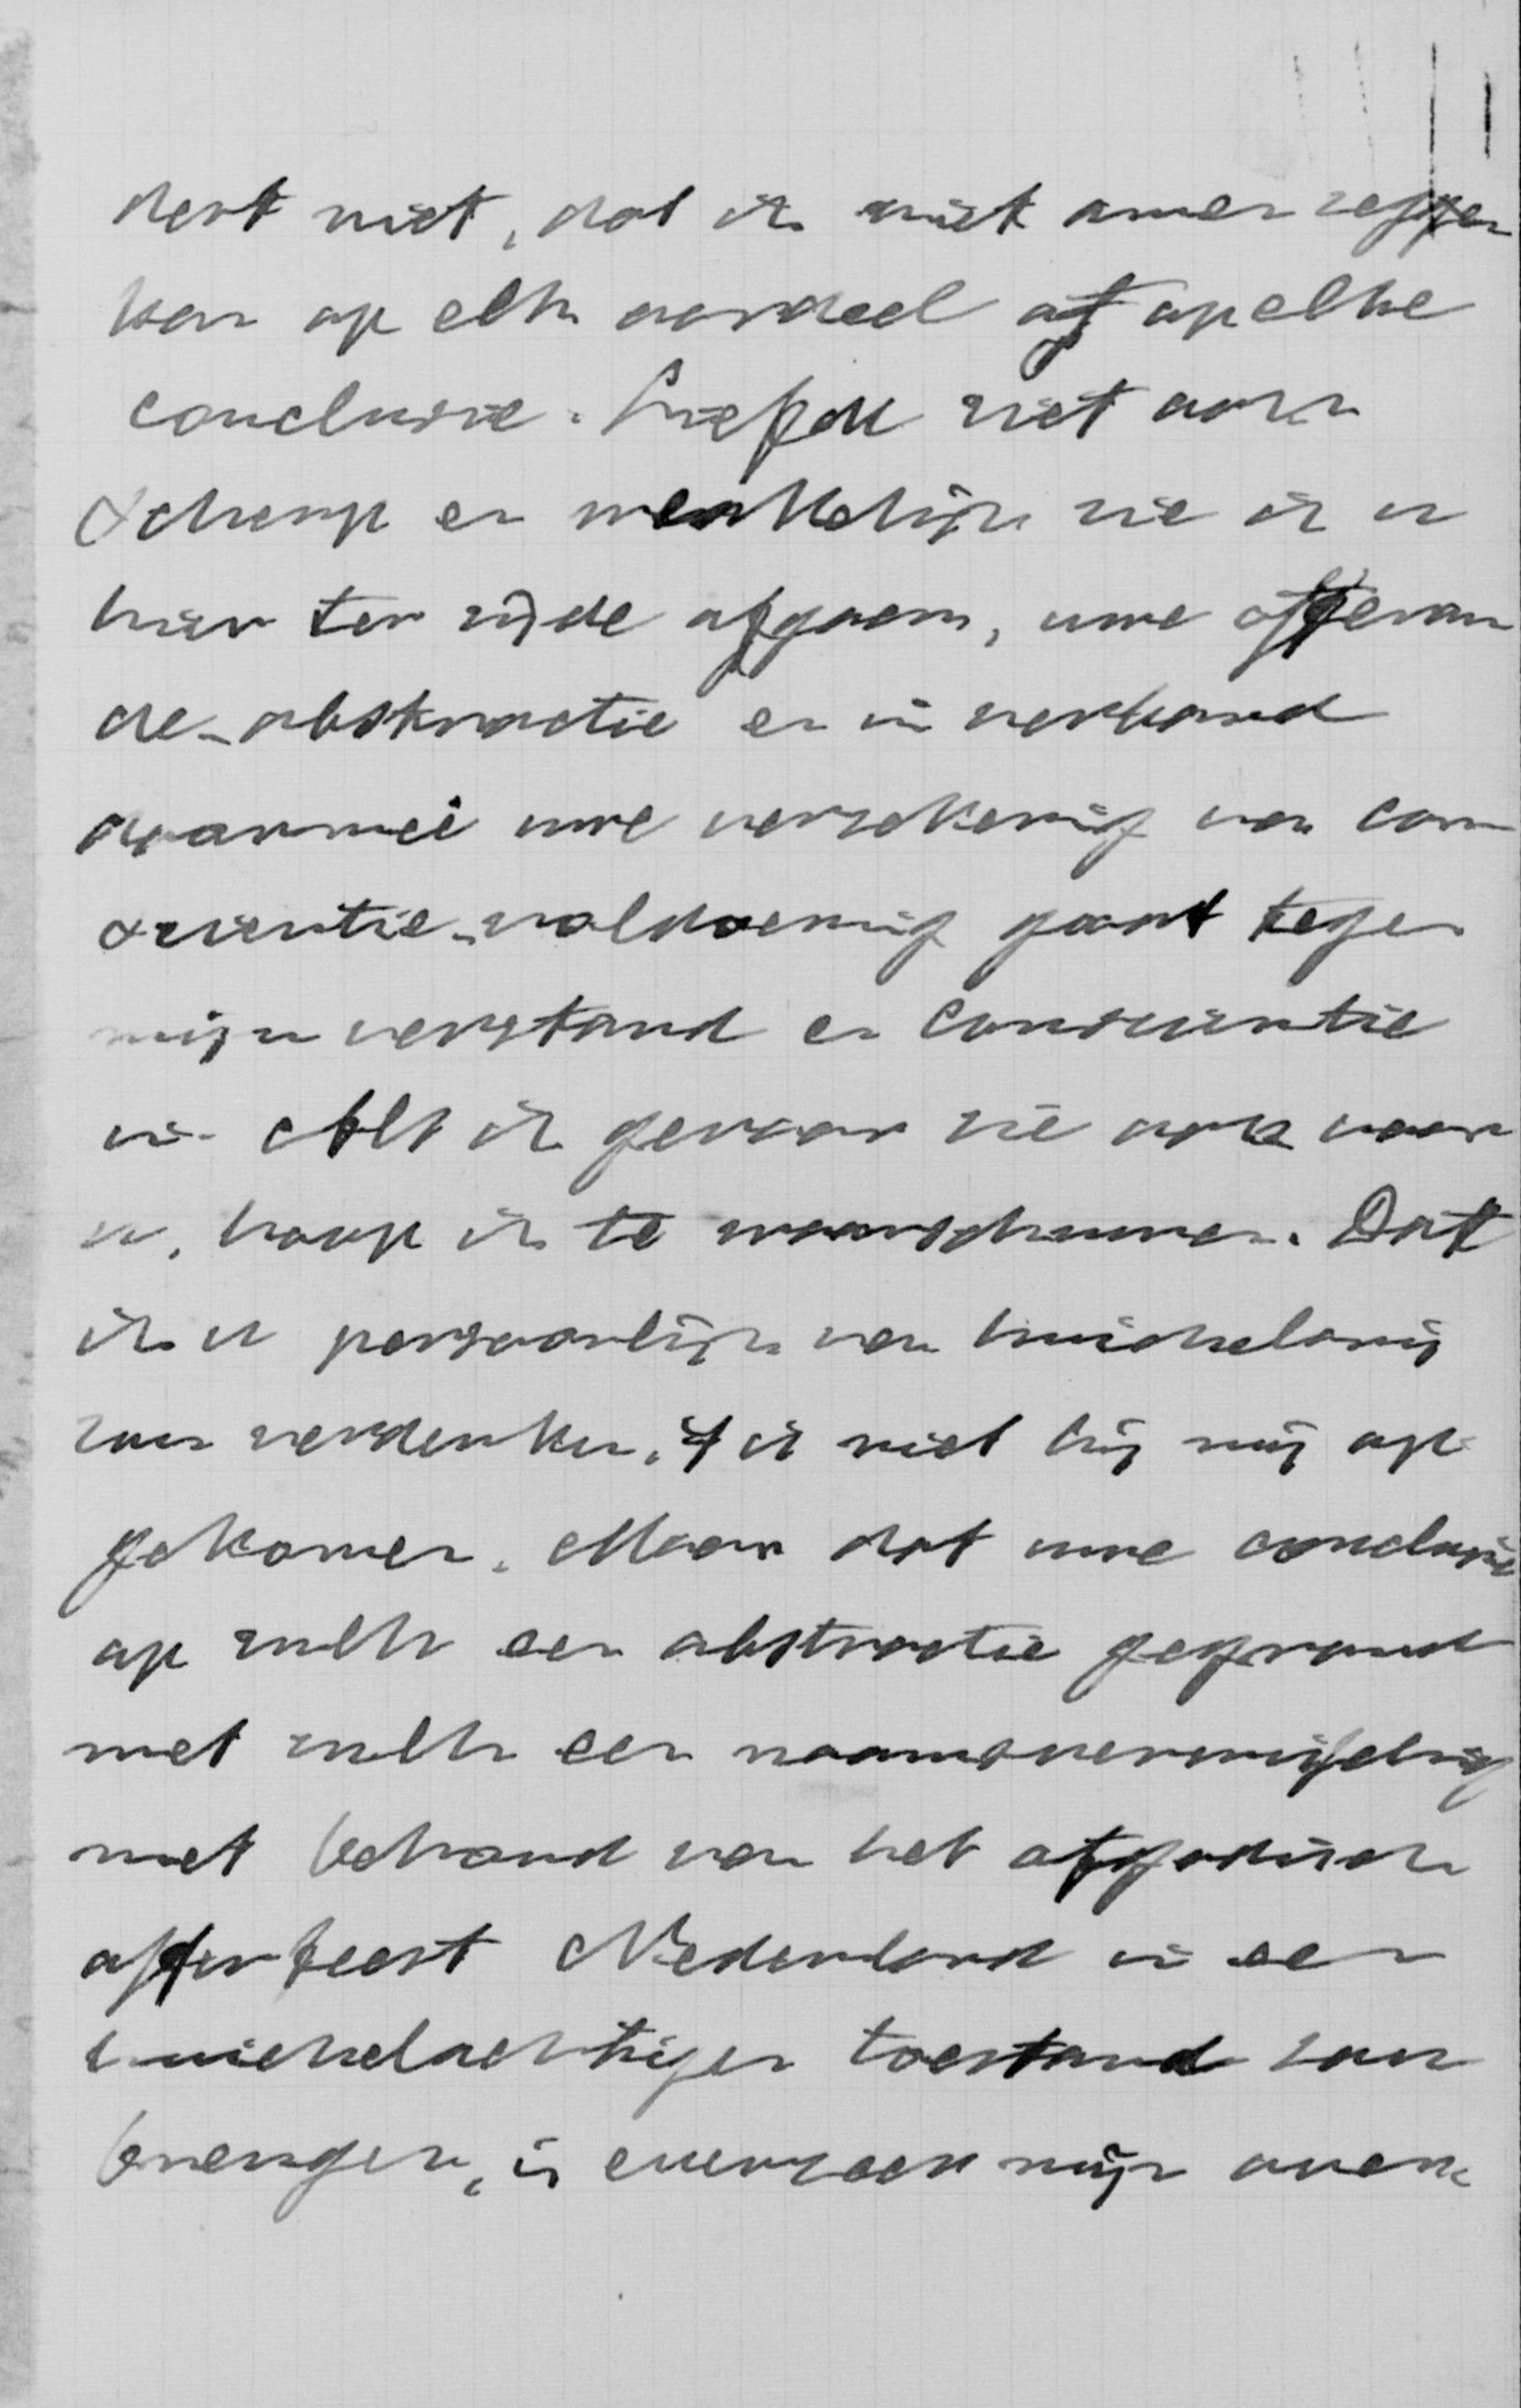 dert niet, dat ik niet amen zeggen
kan op elk oordeel of op elke
conclusie. Liefde ziet ook
scherp en werkelijk zie ik u
hier ter zijde afgaan, uwe offeran
de-abstractie en in verband
daarmeê uwe verzekering van con
scientie-voldoening gaat tegen
mijn verstand en conscientie
in. Als ik gevaar zie ook voor
u, hoop ik te waarschuwen. Dat
ik u persoonlijk van huichelarij
zou verdenken, is niet bij mij op
gekomen. Maar dat uwe conclusie
op zulk een abstractie gegrond
met zulk een naamsverwisseling
met behoud van het afgodisch
offerfeest Nederland in een
huichelachtigen toestand zou
brengen, is evenzeer mijn over